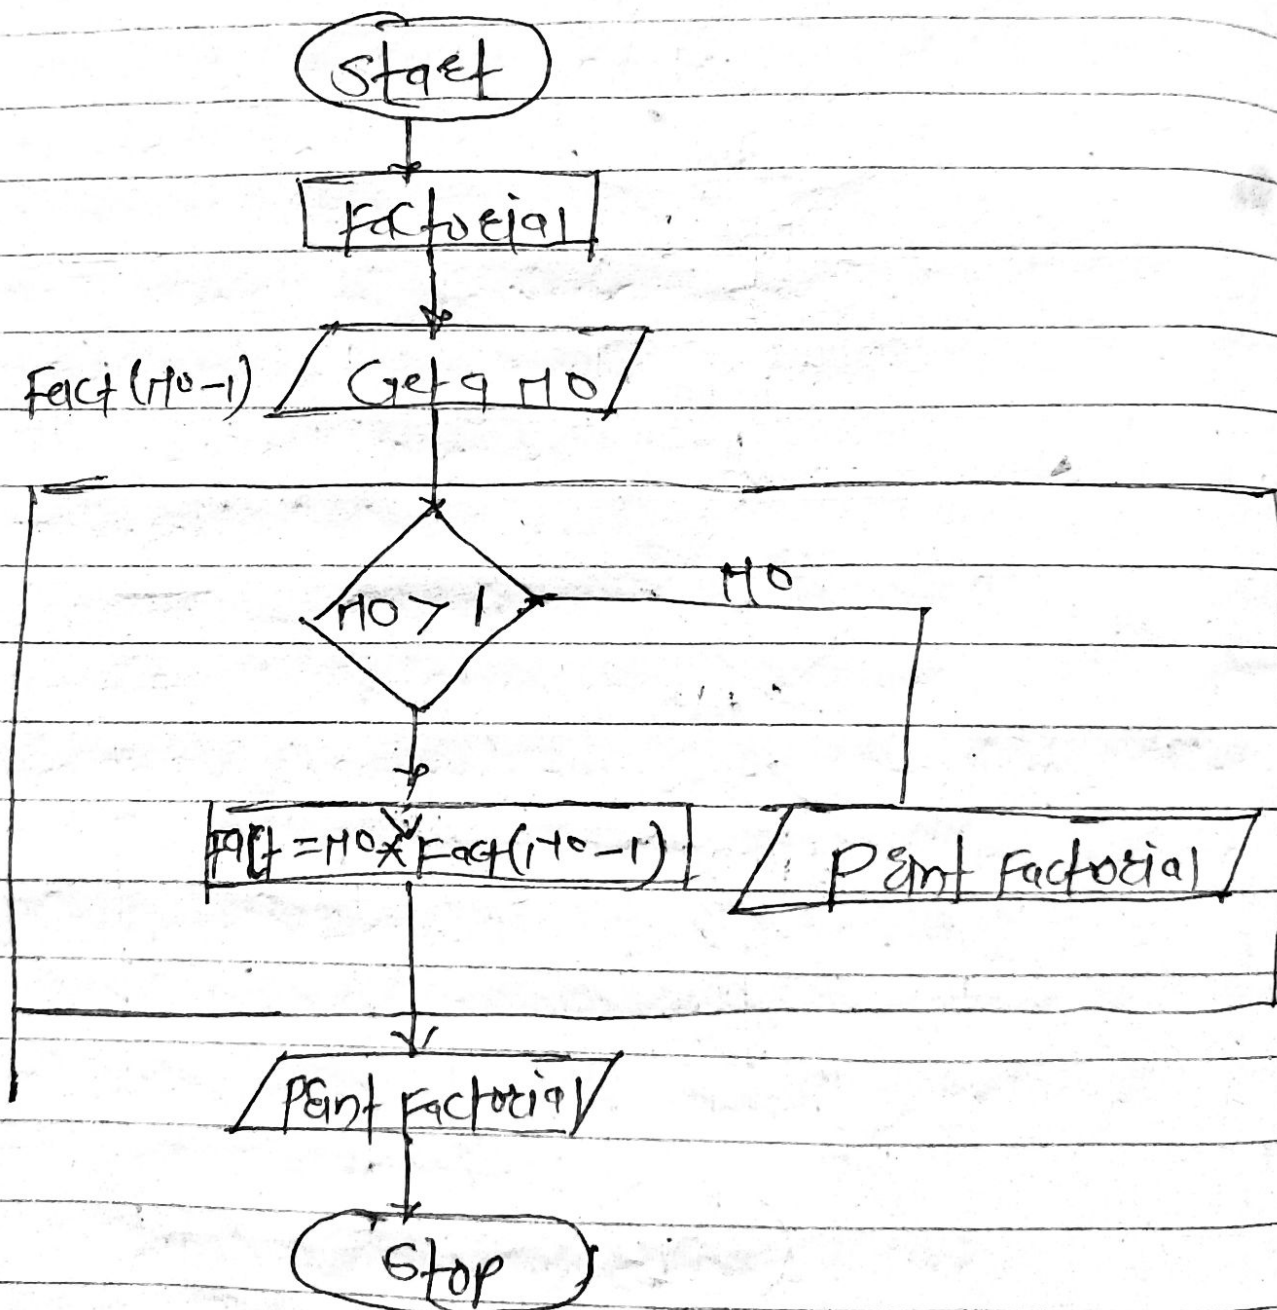 Start
Factorial
Fact(No-1) Get a No
No > 1
No
Fact = No * Fact(No-1)
Print Factorial
Print Factorial
Stop